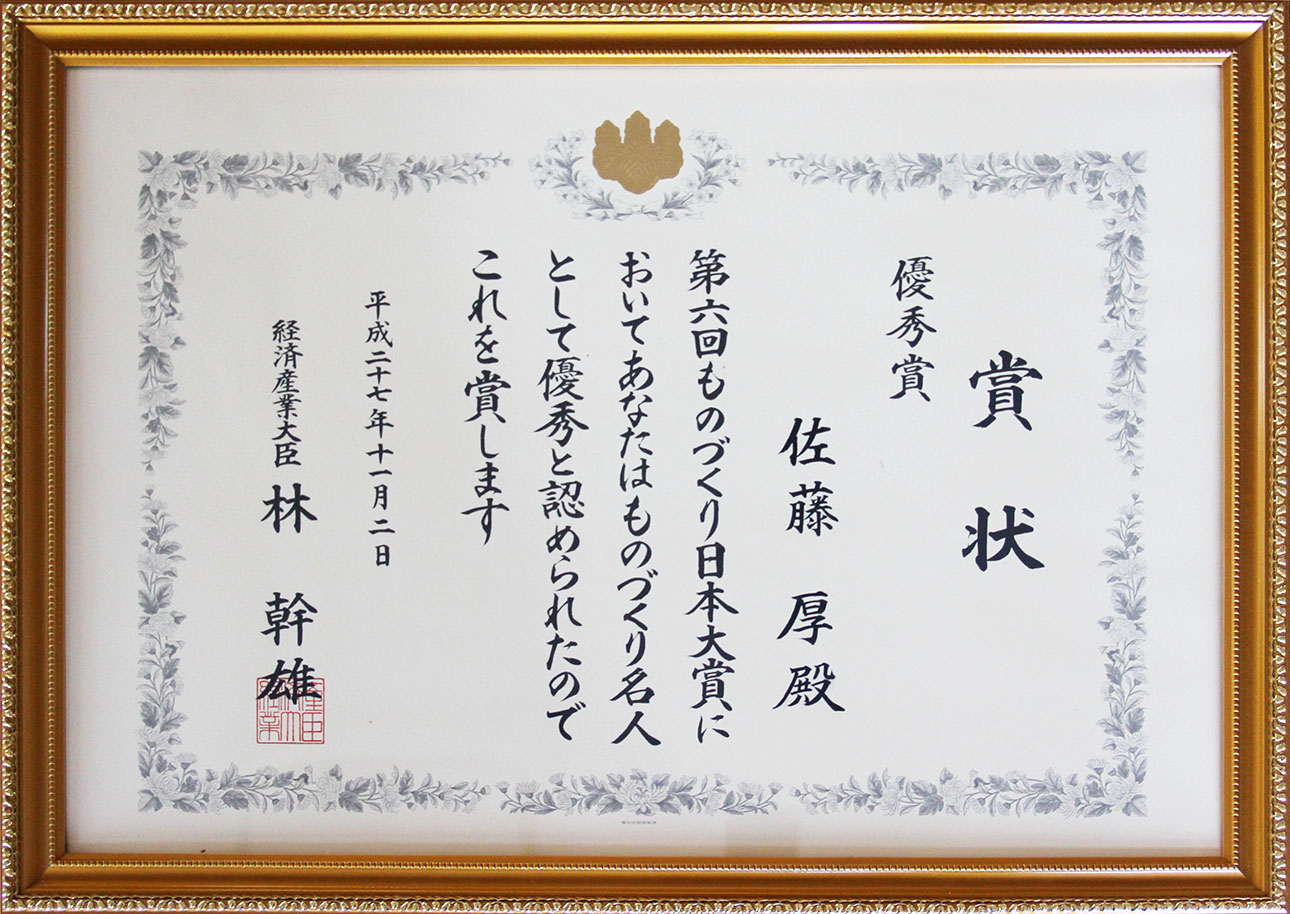 賞状
優秀賞
佐藤 厚殿
第六回ものづくり日本大賞に
おいてあなたはものづくり名人
として優秀と認められたので
これを賞します
平成二十七年十一月二日
経済産業大臣 林 幹雄